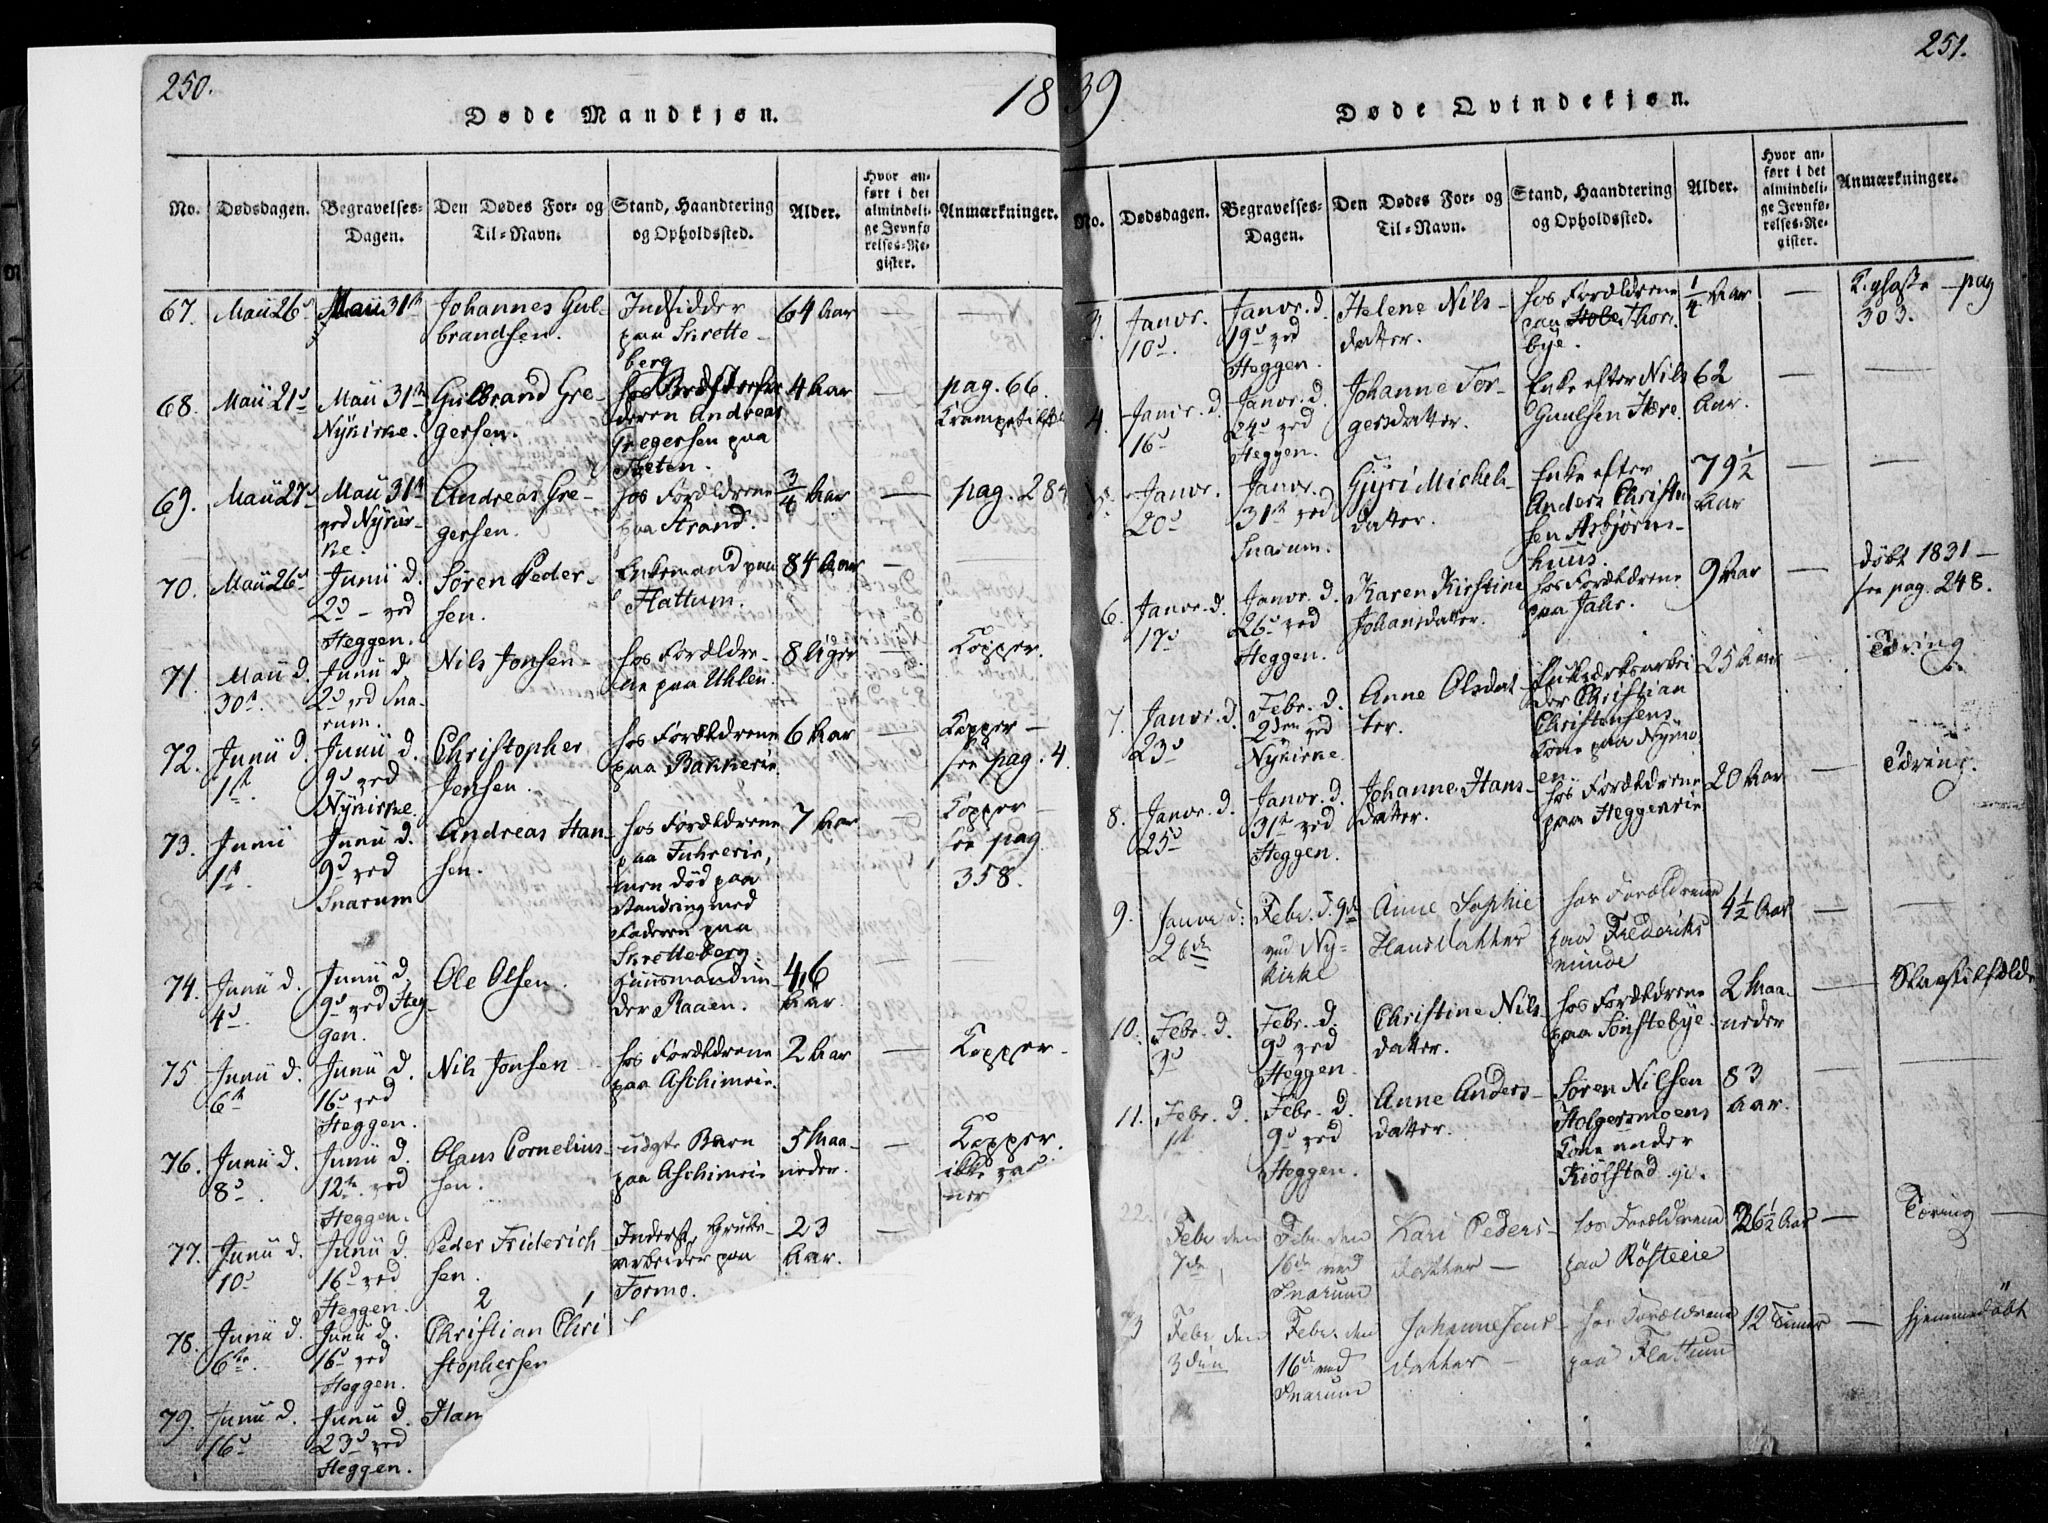 250.
1839
Døde Mandkjøn.
No.
Dødsdagen.
Begravelses-
Dagen.
Den Dødes For- og
Til-Navn.
Stand, Haandtering
og Opholdssted.
Alder.
Hvor an-
ført i det
almindeli-
ge Jevnfø-
relses-Re-
gister.
Anmærkninger.
67.
Maii 26d
Maii 31te
Johannes Gul-
brandsen.
Indsidder
paa Skrette-
berg
64 Aar
68.
Maii 21d
Maii 31te
Nykirke.
Gulbrand Gre-
gersen.
deren Andreas
Gregersen paa
4 Aar
pag. 66.
69.
Maii 27d
Maii 31te
ved Nykir-
ke.
Andreas Gre-
gersen.
hos Forældrene
paa Strand.
3/4 Aar
pag. 284
70.
Maii 26d
Junii d.
2d - ved
Heggen.
Søren Peder-
sen.
Enkemand paa
Flattum.
84 Aar
71.
Maii d.
30te
Junii d.
2d ved Sna-
rum.
Nils Jonsen
hos Forældre-
ne paa Uhlen.
8 Uger
Kopper.
72.
Junii d.
1te
Junii d.
9d ved
Nykirke.
Christopher
Jensen.
hos Forældrene
paa Bakkerie
6 Aar
Kopper -
see pag. 4.
73.
Junii
1te
Junii d.
9d ved
Snarum
Andreas Han-
sen.
hos Forældrene
paa Fuhrerie,
men død paa
Vandring med
Faderen paa
Skretteberg.
7 Aar
Kopper -
see pag
358.
74.
Junii d.
4d
Junii d.
9d ved Heg-
gen.
Ole Olsen
Huusmand un-
der Raaen.
46
Aar.
75
Junii d.
6te
Junii d.
16d ved
Heggen.
Nils Jonsen
hos Forældrene
paa Aschimeie.
2 Aar
Kopper.
76.
Junii d.
8d
Junii d.
12te ved
Heggen.
Olaus Cornelius-
sen.
uægte Barn
paa Aschimeie
5 Maa-
neder.
Kopper.
ikke vac
ner
77.
Junii d.
10d
Junii d.
16d ved
Heggen.
Peder Friderich-
sen.
Inderst, Grube-
arbeider paa
Formo.
23
Aar.
78.
Junii d.
6te
Junii d.
16d ved
Heggen.
2 1
Christian Chri
stophersen
79.
Junii d.
16d
Junii d.
23d ved
Heggen.
Han
251.
Døde Qvindekjøn.
No.
Dødsdagen.
Begravelses-
Dagen.
Den Dødes For- og
Til-Navn.
Stand, Haandtering
og Opholdssted.
Alder.
Hvor an-
ført i det
almindeli-
ge Jevnfø-
relses-Re-
gister.
Anmærkninger.
3.
Janvr.
10d.
Janvr. d.
19d ved
Heggen.
Helene Nils-
datter.
hos Forældrene
paa Thor-
bye.
1/4 Aar
pag
303.
4.
Janvr. d.
16d
Janvr. d.
24d ved
Heggen.
Johanne Tor-
gersdatter.
Enke efter Nils
Guulsen Hære.
62
Aar.
5.
Janvr.
20d
Janvr.
31te ved
Snarum.
Gjyri Michels-
datter.
Enke efter
Anders Christen
sen Asbjørn-
huus.
79 1/2
Aar
6.
Janvr. d.
17d
Janvr. d.
26d ved
Heggen.
Karen Kirstine
Johansdatter.
hos Forældrene
paa Jahr.
9 Aar
døbt 1831 -
see pag. 248.
7.
Janvr. d.
23d
Febr. d.
2den ved
Nykirke.
Anne Olsdat
ter.
der Christian
Christensens
Kone paa Nymo-
en.
25 Aar
Tæring
8.
Janvr. d.
25d
Janvr. d.
31te ved
Heggen.
Johanne Hans-
datter.
hos Forældrene
paa Heggeneie
20 Aar
Tæring.
9.
Janvr d:
26de
Febr. d. 9de
ved Ny-
kirke
Anne Sophie
Hansdatter
hos Forældrene
paa Frederiks
minde
4 1/2 Aar
10.
Febr. d.
3d
Febr. d.
9d ved
Heggen.
Christine Nils-
datter.
hos Forældrene
paa Sønstebye.
2 Maa-
neder
Slagtilfælde
11.
Febr. d.
1te
Febr. d.
9d ved
Heggen.
Anne Anders-
datter.
Søren Nilsen
Holgersmoens
Kone under
Kiølstad
83
Aar.
22.
Febr den
7de
Febr den
16de ved
Snarum
Kari Peders-
datter -
hos Forældrene
paa Røsteeie
26 1/2 Aar
Tæring
Febr den
3dien
Febr. den
16de ved
Snarum
Johanne Jens-
datter -
hos Forældrene
paa Flattum
12 Timer
hjemmedøbt